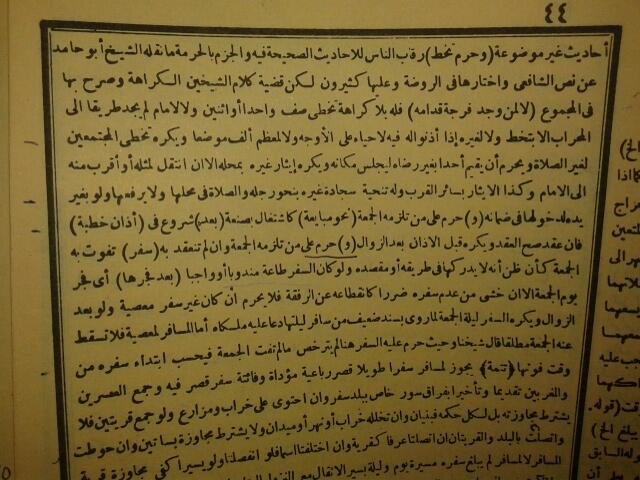 ٤٤
أحاديث غير موضوعة (وحرم تخط) رقاب الناس للاحاديث الصحيحة فيه والجزم بالحرمة ما نقله الشيخ أبو حامد
عن نص الشافعى واختارها فى الروضة وعليها كثيرون لكن قضية كلام الشيخين الكراهة وصرح بها
فى المجموع (لا لمن وجد فرجة قدامه) فله بلا كراهة تخطى صف واحد أو اثنين ولا لامام لم يجد طريقا الى
المحراب الا بتخط ولا لغيره إذا أذنوا له فيه لا حياء على الأوجه ولا لمعظم ألف موضعا ويكره تخطى المجتمعين
لغير الصلاة ويحرم أن يقيم أحدا بغير رضاه ليجلس مكانه ويكره إيثار غيره بمحله الا ان انتقل لمثله أو أقرب منه
الى الامام وكذا الايثار بسائر القرب وله تنحية سجادة غيره بنحو رجله والصلاة فى محلها ولا يرفعها ولو بغير
يده لدخولها فى ضمانه (و) حرم على من تلزمه الجمعة (نحو مبايعة) كاشتغال بصنعة (بعد) شروع فى (أذان خطبة)
فان عقد صح العقد ويكره قبل الاذان بعد الزوال (و) حرم على من تلزمه الجمعة وان لم تنعقد به (سفر) تفوت به
الجمعة كأن ظن أنه لا يدركها فى طريقه أو مقصده ولو كان السفر طاعة مندوبا أو واجبا (بعد فجرها) أى فجر
يوم الجمعة الا ان خشى من عدم سفره ضررا كانقطاعه عن الرفقة فلا يحرم ان كان غير سفر معصية ولو بعد
الزوال ويكره السفر ليلة الجمعة لما روى بسند ضعيف من سافر ليلتها دعا عليه ملكاه أما المسافر لمعصية فلا تسقط
عنه الجمعة مطلقا قال شيخنا وحيث حرم عليه السفر هنا لم يترخص مالم تفت الجمعة فيحسب ابتداء سفره من
وقت فوتها ﴿تتمة﴾ يجوز لمسافر سفرا طويلا قصر رباعية مؤداة وفائتة سفر قصر فيه وجمع العصرين
والمغربين تقديما وتأخيرا بفراق سور خاص ببلد سفر وان احتوى على خراب ومزارع ولو جمع قريتين فلا
يشترط مجاوزته بل لكل حكمه فبنيان وان تخلله خراب أو نهر أو ميدان ولا يشترط مجاوزة بساتين وان حوطت
واتصلت بالبلد والقريتان ان اتصلتا عرفا كقرية وان اختلفتا اسما فلو انفصلتا ولو يسيرا كفى مجاوزة قرية
المسافر لا لمسافر لم يبلغ سفره مسيرة يوم وليلة بسير الاثقال مع النزول